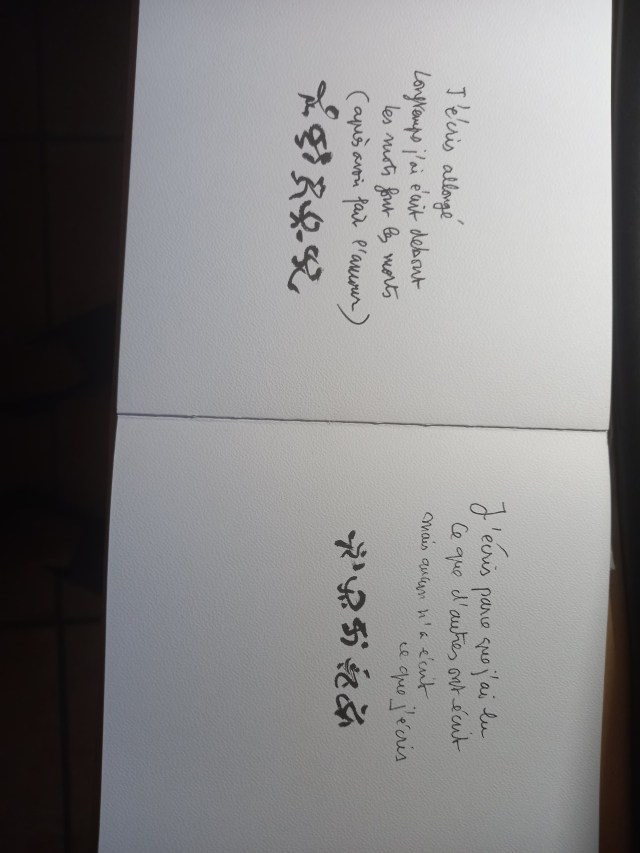 J'écris allongé
Longtemps j'ai écrit debout
les mots font les morts
(après avoir fait l'amour)
J'écris parce que j'ai lu
ce que d'autres ont écrit
mais aucun n'a écrit
ce que j'écris